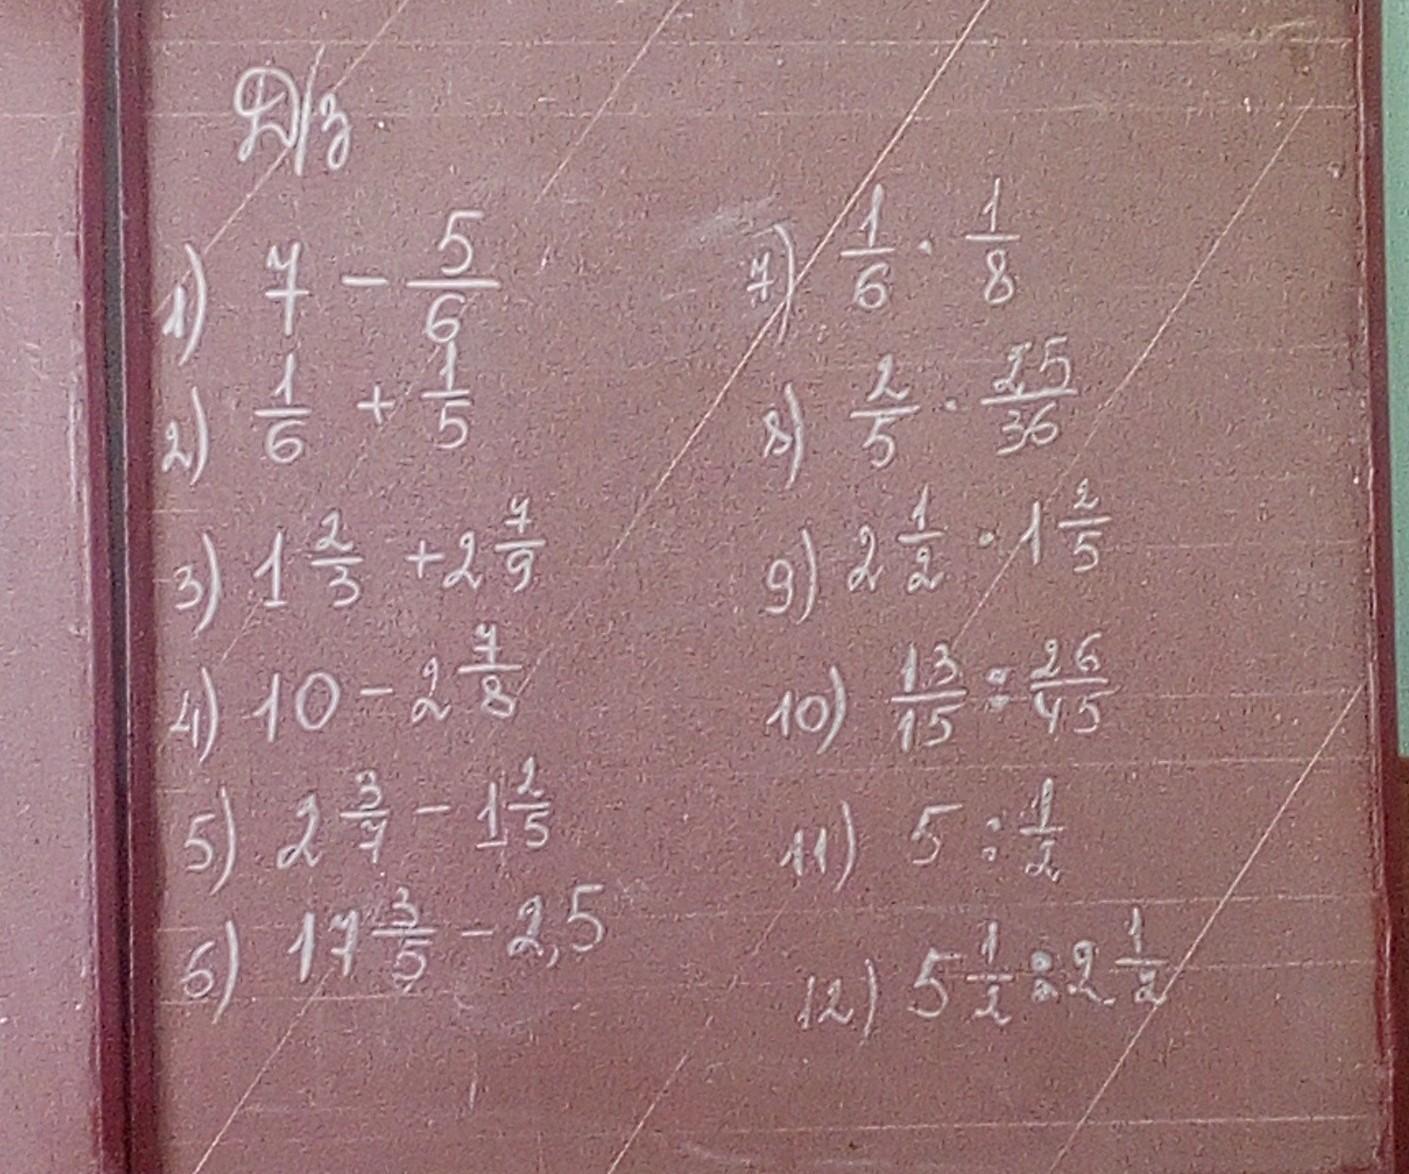 Д/з
1) 7 - 5/6
2) 1/6 + 1/5
3) 1 2/3 + 2 7/9
4) 10 - 2 7/8
5) 2 3/7 - 1 2/5
6) 17 3/5 - 2,5
7) 1/6 · 1/8
8) 2/5 · 25/36
9) 2 1/2 · 1 2/5
10) 13/15 : 26/45
11) 5 : 1/2
12) 5 1/2 : 2 1/2